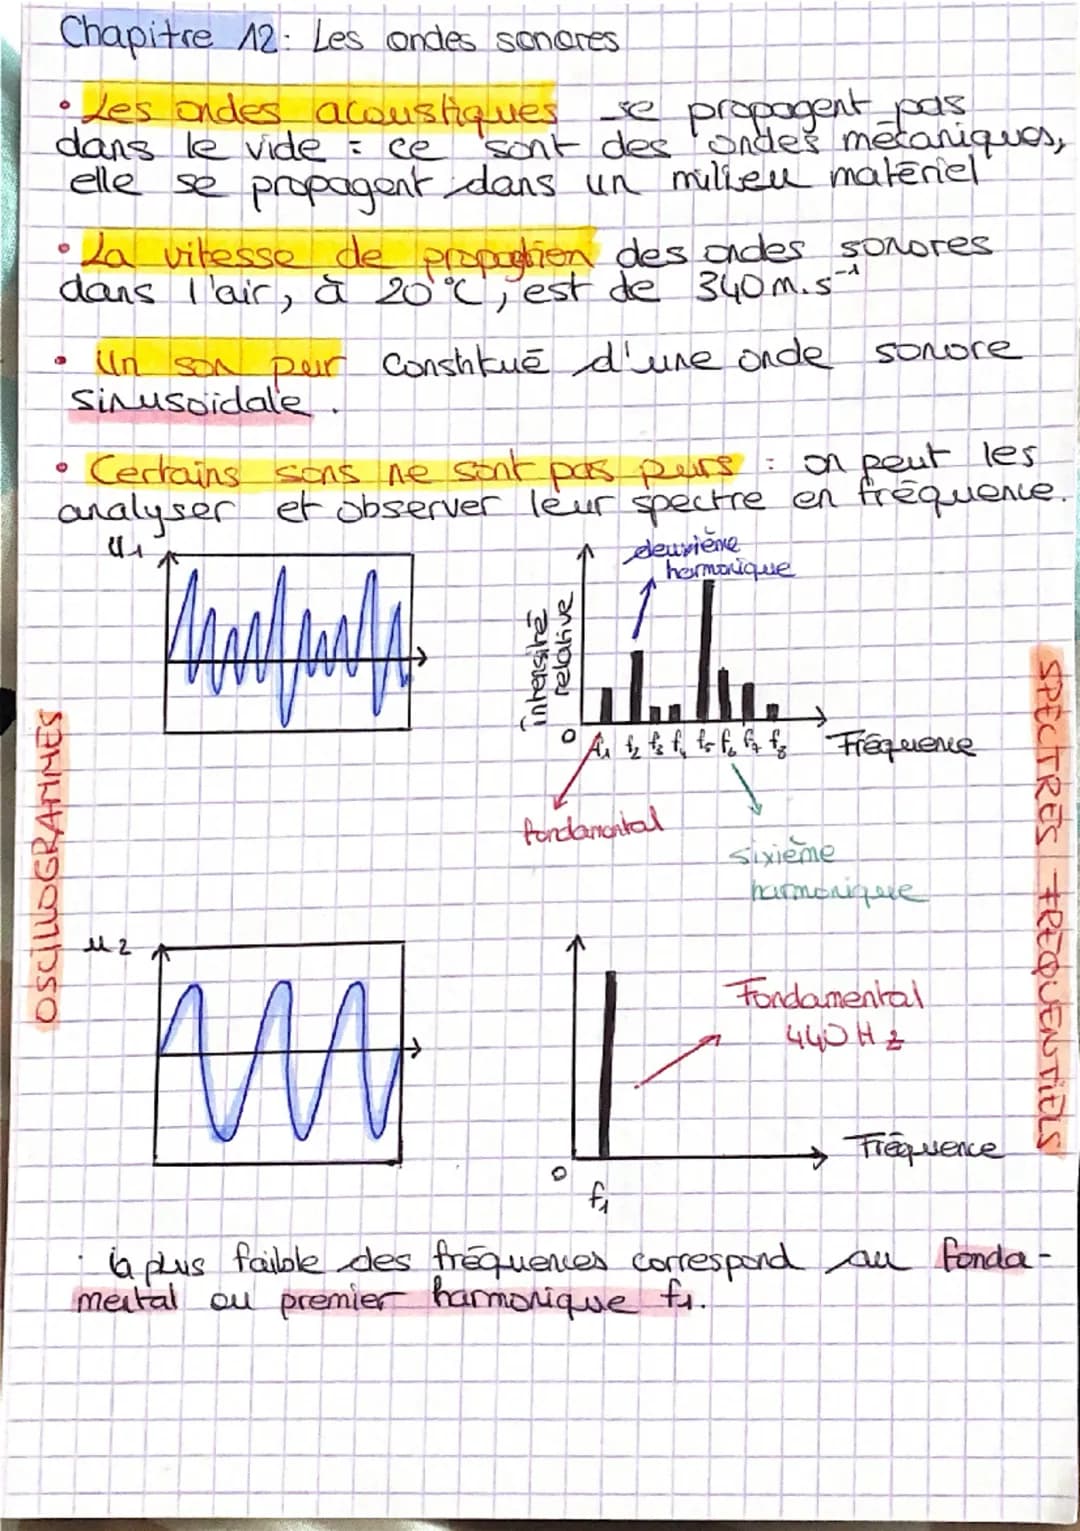 Chapitre 12: Les ondes sonores
• Les ondes acoustiques se propagent pas
dans le vide : ce sont des ondes mécaniques,
elle se propagent dans un milieu matériel
• La vitesse de propagtion des ondes sonores
dans l'air, à 20°C, est de 340 m.s⁻¹
• Un son pur constitué d'une onde sonore
sinusoïdale.
• Certains sons ne sont pas purs : on peut les
analyser et observer leur spectre en fréquence.
u1
deuxième
harmonique
intensité
relative
0 f1 f2 f3 f4 f5 f6 f7 f8 Fréquence
fondamental
sixième
harmonique
OSCILLOGRAMMES
SPECTRES FREQUENTIELS
u2
Fondamental
440Hz
Fréquence
0
f1
· la plus faible des fréquences correspond au fonda-
mental ou premier harmonique f1.